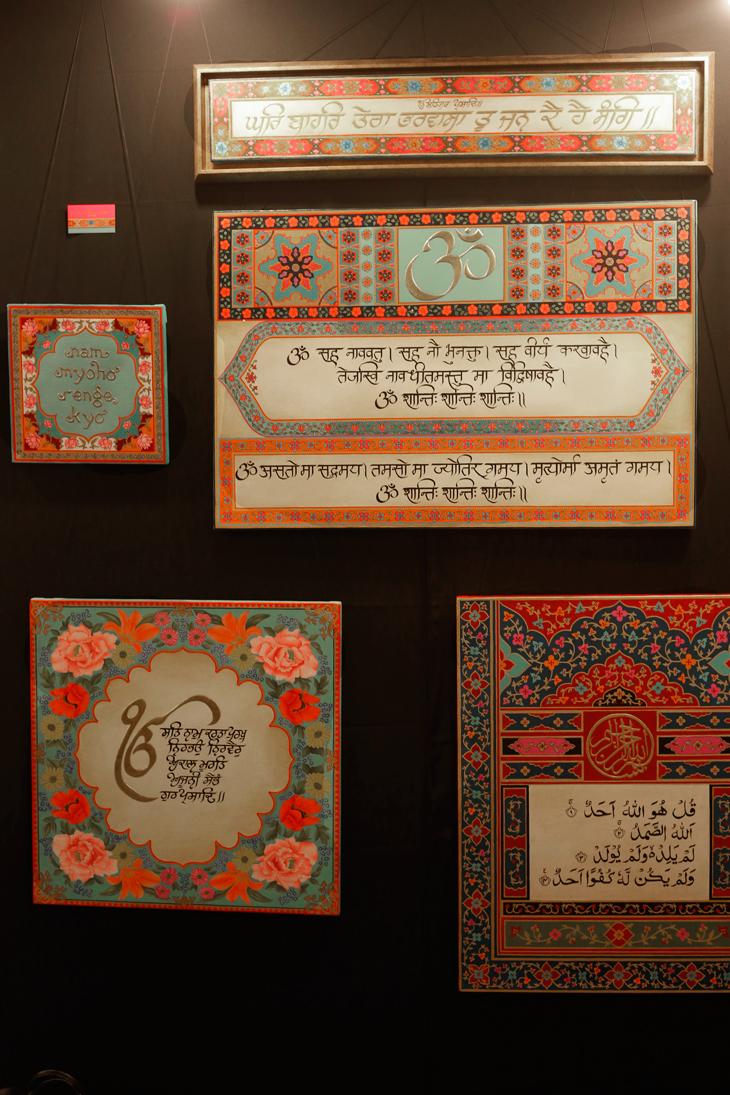 ਘਰਿ ਬਾਹਰਿ ਤੇਰਾ ਭਰਵਾਸਾ ਤੂ ਜਨ ਕੈ ਹੈ ਸੰਗਿ ॥
ॐ
nam
myoho
renge
kyo
ॐ सह नाववतु। सह नौ भुनक्तु। सह वीर्यं करवावहै।
तेजस्वि नावधीतमस्तु मा विद्विषावहै।
ॐ शान्तिः शान्तिः शान्तिः॥
ॐ असतो मा सद्गमय। तमसो मा ज्योतिर् गमय। मृत्योर्मा अमृतं गमय।
ॐ शान्तिः शान्तिः शान्तिः॥
ੴ ਸਤਿ ਨਾਮੁ ਕਰਤਾ ਪੁਰਖੁ
ਨਿਰਭਉ ਨਿਰਵੈਰੁ
ਅਕਾਲ ਮੂਰਤਿ
ਅਜੂਨੀ ਸੈਭੰ
ਗੁਰ ਪ੍ਰਸਾਦਿ॥
قُلْ هُوَ اللهُ اَحَدٌ ۚ ۝١
اَللهُ الصَّمَدُ ۚ ۝٢
لَمْ يَلِدْ ۙ وَلَمْ يُوْلَدْ ۙ ۝٣
وَلَمْ يَكُنْ لَّهٗ كُفُوًا اَحَدٌ ۚ ۝٤